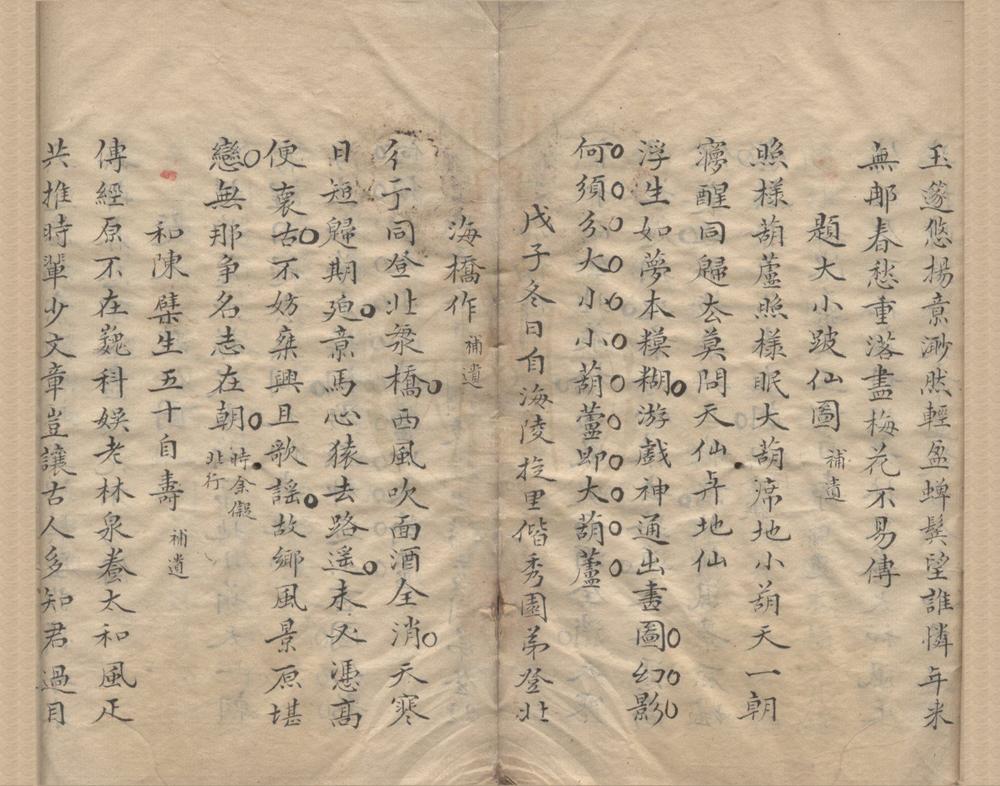 玉邃悠揚意渺然輕盈蟬鬢望誰憐年來
無那春愁重落盡梅花不易傳
題大小跛仙圖補遺
照樣葫蘆照樣眠大葫席地小葫天一朝
寢醒同歸去莫問天仙與地仙
浮生如夢本模糊游戲神通出畫圖幻影
何須分大小小葫蘆即大葫蘆
戊子冬日自海陵旋里偕秀園弟登北
海橋作補遺
彳亍同登北眾橋西風吹面酒全消天寒
日短歸期迫意馬心猿去路遙未必憑高
便褱古不妨乘興且歌謠故鄉風景原堪
戀無那爭名志在朝時余擬北行
和陳檗生五十自壽補遺
傳經原不在巍科娛老林泉養太和風疋
共推時輩少文章豈讓古人多知君過目